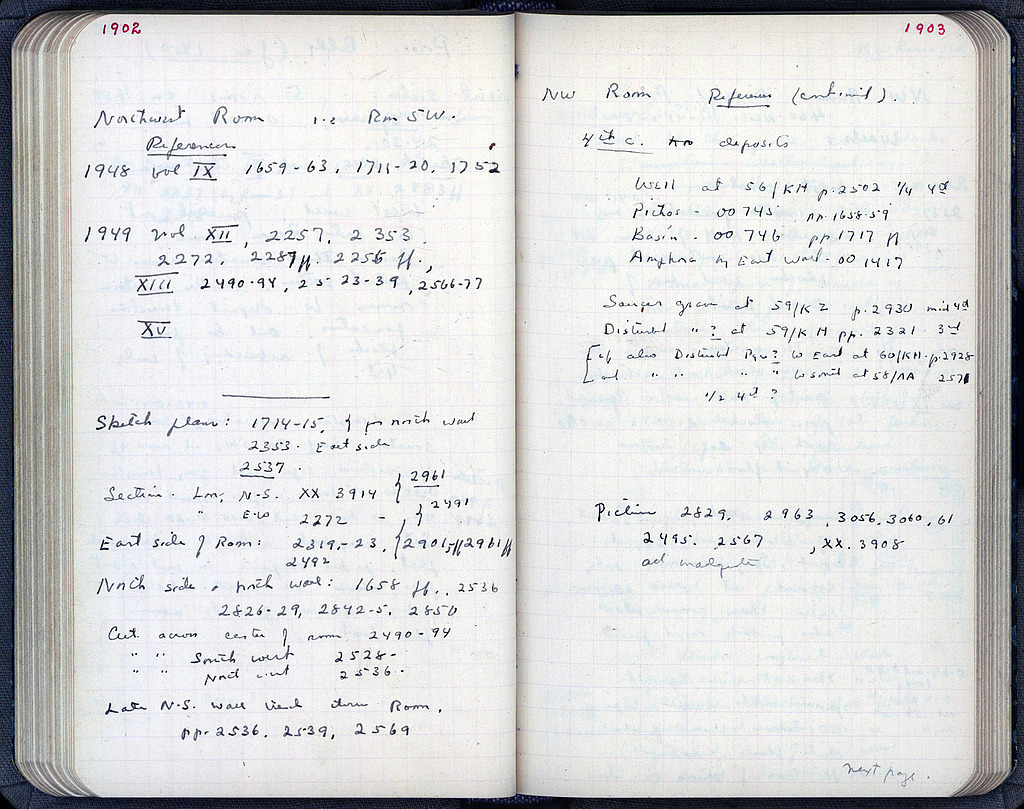 1902
Northwest Room 1.2 Rm 5W.
References
1948 vol IX 1659-63, 1711-20, 1752
1949 vol XII, 2257, 2353,
2272, 2287ff. 2255 ff.,
XIII 2490-94, 2523-39, 2566-77
XV
Sketch plans: 1714-15, } for north wall
2353. East side
2537.
Section. Lm, N-S. XX 3914 } 2961
" E-W 2272 - } 2491
East side of Room: 2319-23, {2901-ff 2961 ff
2492
North side & north wall: 1658 ff., 2536
2826-29, 2842-5, 2850
Cut across center of room 2490-94
" " South west 2528-
" " North west 2536.
Late N-S. wall thru Room,
pp. 2536, 2539, 2569
1903
NW Room References (continued).
4th c. deposits
Well at 56/KH p. 2502 1/4 4th
Pithos - 00 745 pp. 1658-59
Basin - 00 746 pp 1717 ff
Amphora by East wall - 00 1417
Saucer grave at 59/KZ p. 2930 mid 4th
Disturbed " ? at 59/KH pp. 2321 3rd
[cf also Disturbed Pyre? W East at 60/KH. p. 2928
[and " " " " W South at 58/AA 2571
1/2 4th ?
Picture 2829, 2963, 3056, 3060, 61
2495. 2567, XX. 3908
next page.